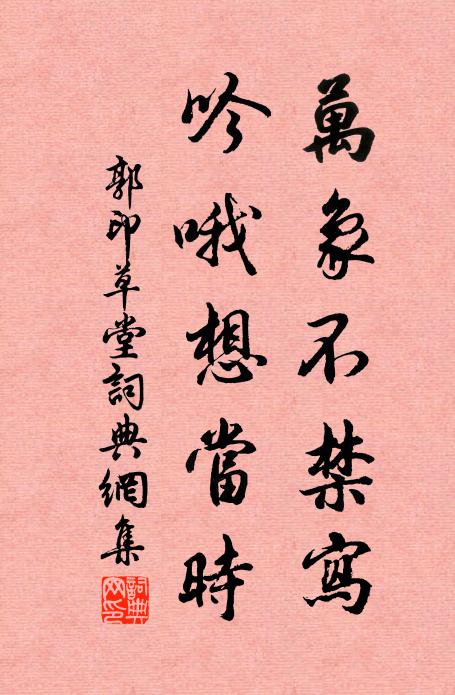 萬象不禁寫
吟哦想當時
郭印草堂詞典網集
詞典网印